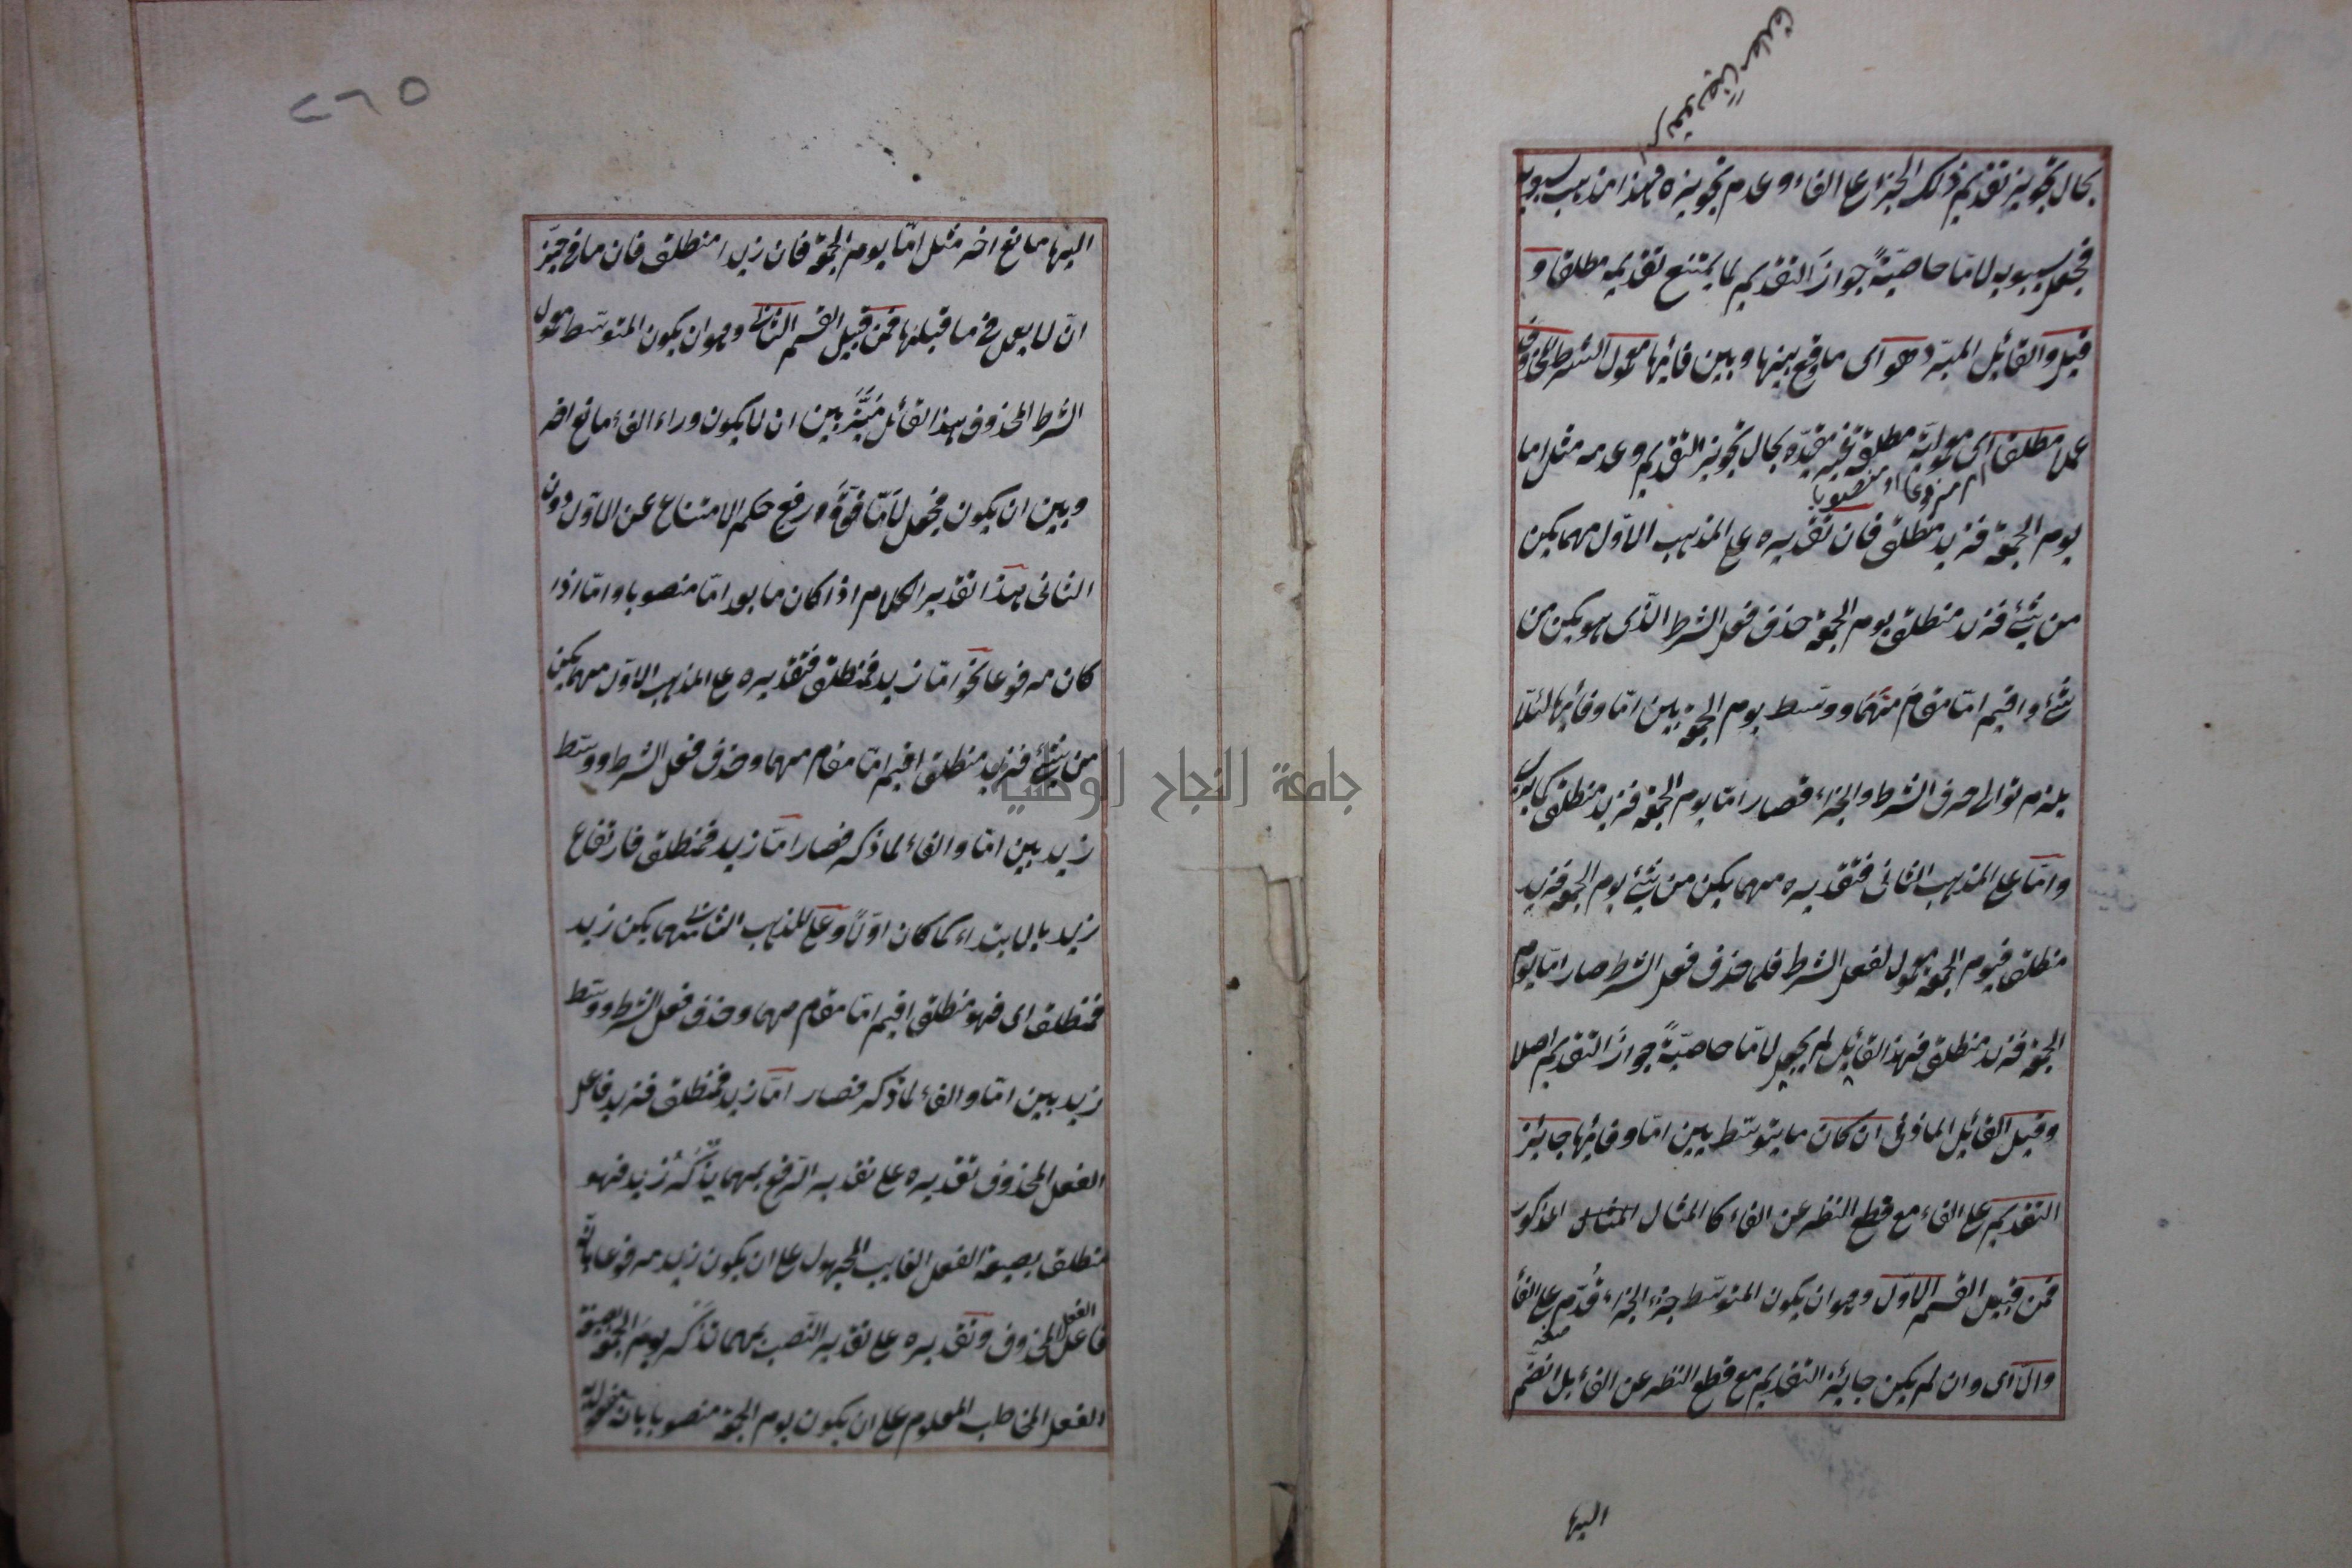 بحال تجويز تقديم ذلك الجزاء على الفاء وعدم تجويزه فهذا مذهب سيبويه
فجعل سيبويه لاما خاصيّةً جوازَ التقديم لما يمتنع تقديمه مطلقا و
قيل والقائل المبرّد هو اى ما وقع بينها وبين فائها معمول الشرط المحذوف
عملا مطلقا اى معمولية مطلقة غير مقيّدة بحال تجويز التقديم وعدمه مثل اما
اى مرفوعا او منصوبا
يوم الجمعة فزيد منطلق فان تقديره على المذهب الاوّل مهما يكن
من شئ فزيد منطلق يوم الجمعة حذف فعل الشرط الّذى هو يكن من
شئ واقيم امّا مقامَ مَهْمَا ووسّط يوم الجمعة بين امّا وفائها لئلّا
يلزم توالى حرف الشرط والجزاء فصار امّا يوم الجمعة فزيد منطلق كما ترى
وامّا على المذهب الثانى فتقديره مهما يكن من شئ يوم الجمعة فزيد
منطلق فيوم الجمعة معمول لفعل الشرط فلما حذف فعل الشرط صار امّا يوم
الجمعة فزيد منطلق فهذا القائل لم يجعل لامّا خاصيّةً جوازَ التقديم اصلا
وقيل القائل المازنى ان كان ما يتوسّط بين امّا وفائها جائز
التقديم على الفاء مع قطع النظر عن الفاء كالمثال المثال المذكور
فمن قبيل القسم الاوّل وهو ان يكون المتوسّط جزء الجزاء قُدّم على الفاء
والّا اى وان لم يكن جايز التقديم مع قطع النظر عن الفاء بل انضمّ
اليها
٢٦٥
اليها مانع اخر مثل امّا يوم الجمعة فان زيدا منطلق فان ما فى حيّز
انّ لا يعمل فى ما قبلها فمن قبيل القسم الثانى وهو ان يكون المتوسّط معمول
الشرط المحذوف فهذا القائل مَيَّزَ بين ان لا يكون وراء الفاء مانع اخر
وبين ان يكون فجعل لِاَمّا قوّةَ رفع حكم الامتناع عن الاوّل دون
الثانى هذا تقدير الكلام اذا كان ما بعد امّا منصوبا وامّا اذا
كان مرفوعا نحو امّا زيد فمنطلق فتقديره على المذهب الاوّل مهما يكن
من شئ فزيد منطلق اقيم امّا مقام مهما وحذف فعل الشرط ووسّط
زيد بين امّا والفاء لما ذكر فصار امّا زيد فمنطلق فارتفاع
زيد بالابتداء كما كان اوّلًا وعلى المذهب الثانى مهما يكن زيد
فمنطلق اى فهو منطلق اقيم امّا مقام مهما وحذف فعل الشرط ووسّط
زيد بين امّا والفاء لما ذكر فصار امّا زيد فمنطلق فزيد فاعل
الفعل المحذوف تقديره على تقدير الرّفع بمهما يُذْكَرُ زيد فهو
منطلق بصيغة الفعل الغايب المجهول على ان يكون زيد مرفوعا بانّه
فاعل الفعل المحذوف وتقديره على تقدير النّصب بمهما تذكر يومَ الجمعة بصيغة
الفعل المخاطب المعلوم على ان يكون يوم الجمعة منصوبا بانّه مفعول
جامعة النجاح الوطنية